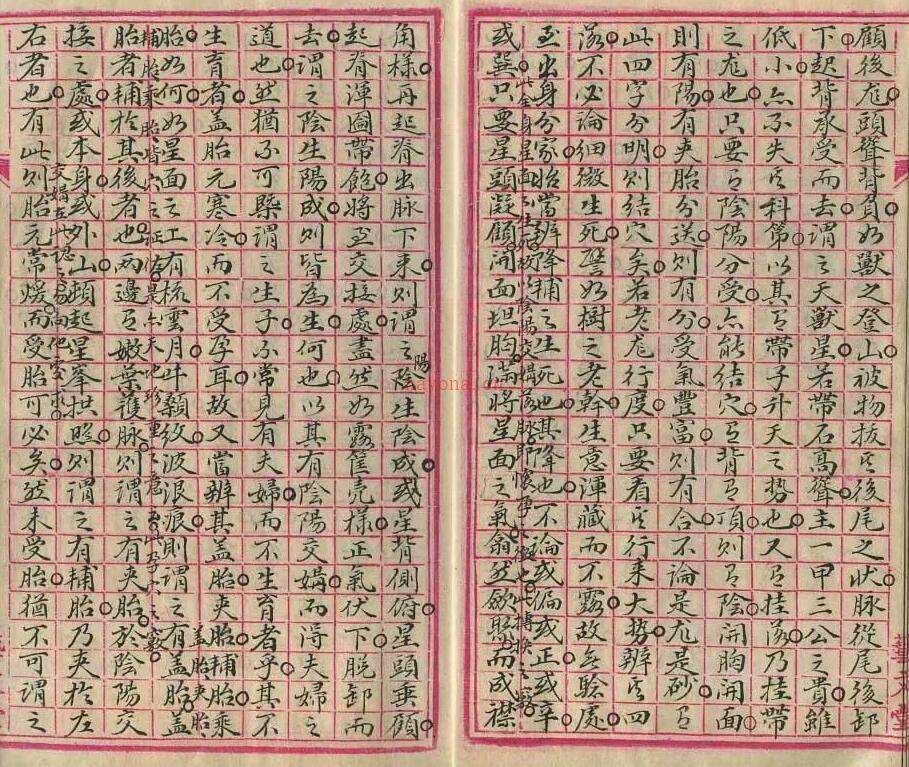 顧後龙頭聳背負如獸之登山被物拔其後尾之狀脉從尾後卸
下起背承受而去謂之天獸星若帶石高聳主一甲三公之貴雖
低小亦不失其科第以其有帶子升天之勢也又有挂落乃挂帶
之龙也只要有陰陽分受亦能結穴有背有頂則有陰開胸開面
則有陽有夹胎分送則有分受氣豐富則有合不論是龙是砂有
此四字分明則結穴矣若老龙行度只要看其行来大勢辨其四
落不必論細微生死譬如樹之老幹生意渾藏而不露故無驗處
至出身分家胎當辨降輔之生死也其降也不論或偏或正或辛
或巽只要星頭凝顧開面坦胸滿將星面之氣翕然斂聚而成襟
角樣再起脊出脉下来則謂之陰生陰成或星背側俯星頭垂顧
陽
起脊渾圇帶飽將至交接處盡然如露筐壳樣正氣伏下脱卸而
去謂之陰生陽成則皆為生何也以其有陰陽交媾而淂夫婦之
道也然猶不可槩謂之生子亦常見有夫婦而不生育者乎其不
生育者盖胎元寒冷而不受孕耳故又當辨其盖胎夹胎輔胎乘
胎如何如星面之工有梳雲月牛顙紋波浪痕則謂之有盖胎盖
盖胎夹胎
輔胎乘胎皆穴之証佐
胎者輔於其後者也两邊有嫩葉護脉則謂之有夹胎於陰陽交
接之處或本身或外山頭起星峯拱照則謂之有輔胎乃夹於左
右者也有此則胎元常煖而受胎可必矣然未受胎猶不可謂之